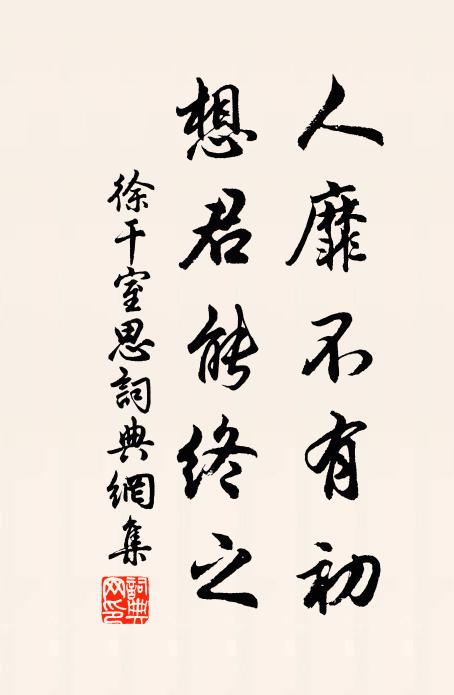 人靡不有初
想君能终之
徐干室思詞典網集
詞典
网印